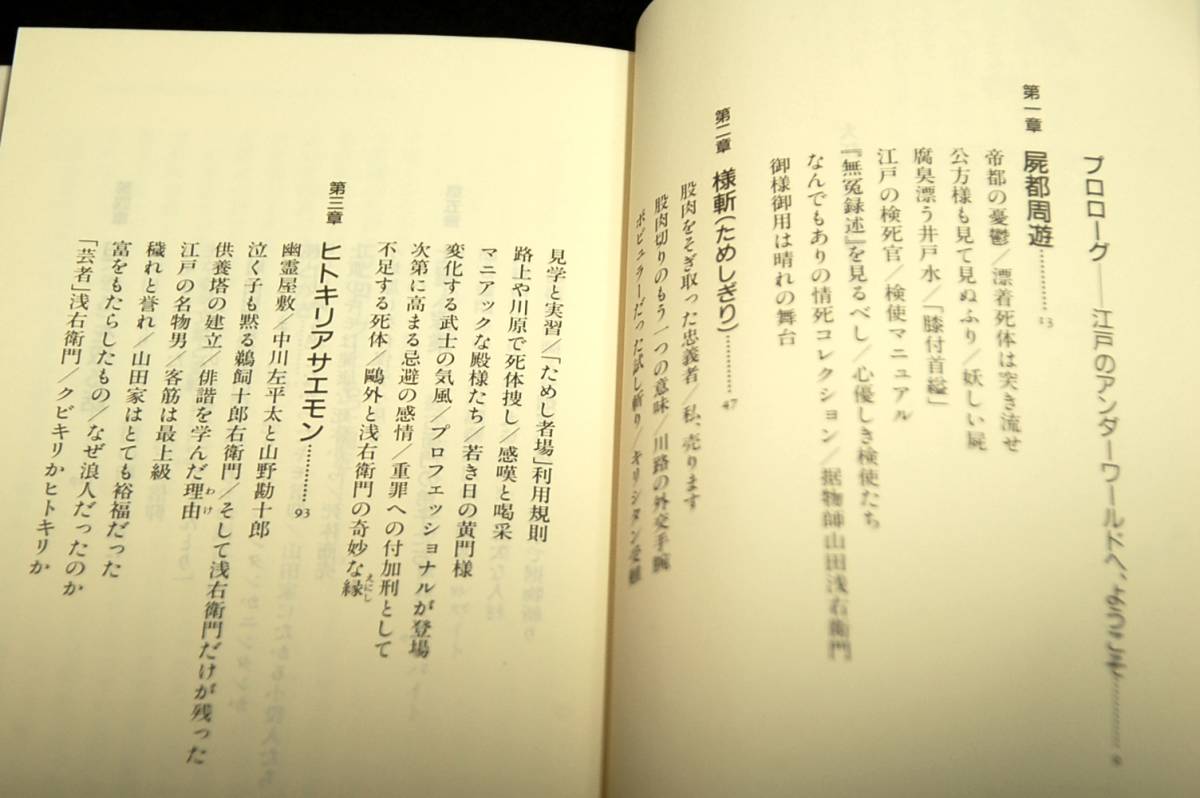 プロローグ――江戸のアンダーワールドへ、ようこそ…………9
第一章 屍都周遊…………13
帝都の憂鬱/漂着死体は突き流せ
公方様も見て見ぬふり/妖しい屍
腐臭漂う井戸水/「膝付首縊」
江戸の検死官/検使マニュアル
『無冤録述』を見るべし/心優しき検使たち
なんでもありの情死コレクション/据物師山田浅右衛門
御様御用は晴れの舞台
第二章 様斬(ためしぎり)…………47
股肉をそぎ取った忠義者/私、売ります
股肉切りのもう一つの意味/川路の外交手腕
ポピュラーだった試し斬り/キリシタン受難
見学と実習/「ためし者場」利用規則
路上や川原で死体捜し/感嘆と喝采
マニアックな殿様たち/若き日の黄門様
変化する武士の気風/プロフェッショナルが登場
次第に高まる忌避の感情/重罪への付加刑として
不足する死体/鷗外と浅右衛門の奇妙な縁えにし
第三章 ヒトキリアサエモン…………93
幽霊屋敷/中川左平太と山野勘十郎
泣く子も黙る鵜飼十郎右衛門/そして浅右衛門だけが残った
供養塔の建立/俳諧を学んだ理由わけ
江戸の名物男/客筋は最上級
穢れと誉れ/山田家はとても裕福だった
富をもたらしたもの/なぜ浪人だったのか
「芸者」浅右衛門/クビキリかヒトキリか